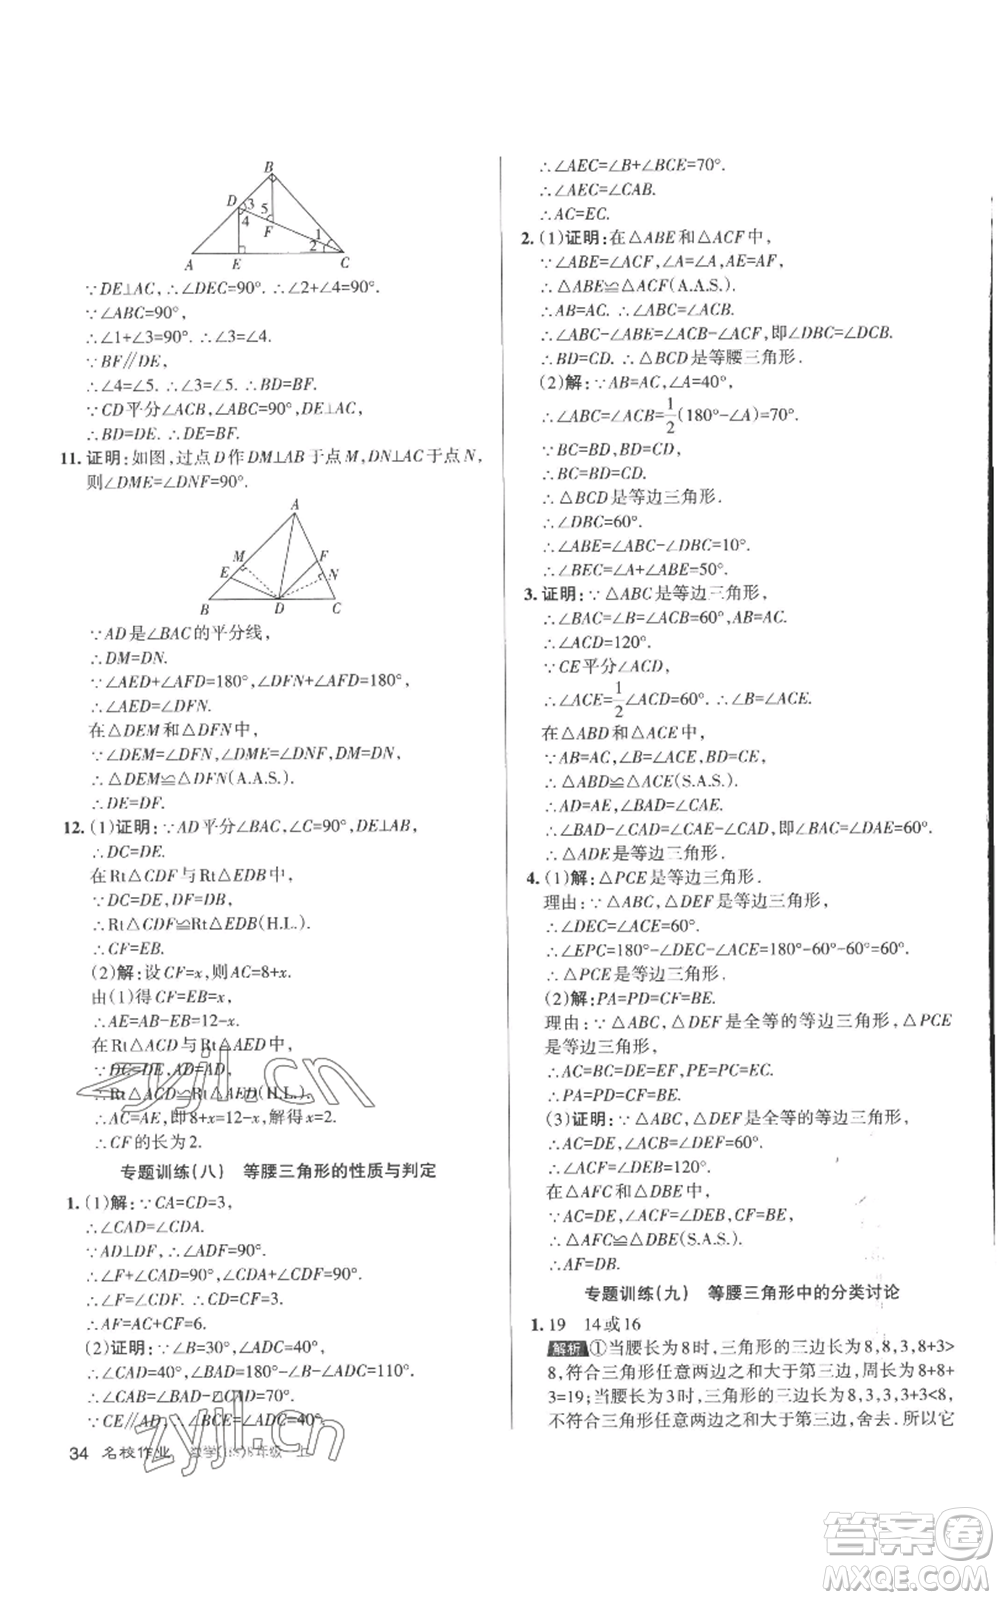 B
D 3 5
4 F 1
2
A E C
∵DE⊥AC,∴∠DEC=90°.∴∠2+∠4=90°.
∵∠ABC=90°,
∴∠1+∠3=90°.∴∠3=∠4.
∵BF∥DE,
∴∠4=∠5.∴∠3=∠5.∴BD=BF.
∵CD平分∠ACB,∠ABC=90°,DE⊥AC,
∴BD=DE.∴DE=BF.
11. 证明:如图,过点D作DM⊥AB于点M,DN⊥AC于点N,
则∠DME=∠DNF=90°.
A
M F
E N
B D C
∵AD是∠BAC的平分线,
∴DM=DN.
∵∠AED+∠AFD=180°,∠DFN+∠AFD=180°,
∴∠AED=∠DFN.
在△DEM和△DFN中,
∵∠DEM=∠DFN,∠DME=∠DNF,DM=DN,
∴△DEM≌△DFN(A.A.S.).
∴DE=DF.
12. (1)证明:∵AD平分∠BAC,∠C=90°,DE⊥AB,
∴DC=DE.
在Rt△CDF与Rt△EDB中,
∵DC=DE,DF=DB,
∴Rt△CDF≌Rt△EDB(H.L.).
∴CF=EB.
(2)解:设CF=x,则AC=8+x.
由(1)得CF=EB=x,
∴AE=AB-EB=12-x.
在Rt△ACD与Rt△AED中,
∵DC=DE,AD=AD,
∴Rt△ACD≌Rt△AED(H.L.).
∴AC=AE,即8+x=12-x,解得x=2.
∴CF的长为2.
专题训练(八) 等腰三角形的性质与判定
1. (1)解:∵CA=CD=3,
∴∠CAD=∠CDA.
∵AD⊥DF,∴∠ADF=90°.
∴∠F+∠CAD=90°,∠CDF+∠CDA=90°.
∴∠F=∠CDF.∴CF=CD=3.
∴AF=AC+CF=3+3=6.
(2)证明:∵∠CAD=40°,∠ADC=110°,
∴∠ACD=40°,∠BAD=180°-∠B-∠ADC=110°.
∴∠BAC=∠BAD-∠CAD=70°.
∵CE∥AD,∴∠BCE=∠ADC=40°.
34 名校作业 数学(HS)8年级 上
∴∠AEC=∠B+∠BCE=70°.
∴∠AEC=∠CAB.
∴AC=EC.
2. (1)证明:在△ABE和△ACF中,
∵∠ABE=∠ACF,∠A=∠A,AE=AF,
∴△ABE≌△ACF(A.A.S.).
∴AB=AC.∴∠ABC=∠ACB.
∴∠ABC-∠ABE=∠ACB-∠ACF,即∠DBC=∠DCB.
∴BD=CD.∴△BCD是等腰三角形.
(2)解:∵AB=AC,∠A=40°,
∴∠ABC=∠ACB=1/2(180°-∠A)=70°.
∵BC=BD=CD.
∴BC=BD=CD.
∴△BCD是等边三角形.
∴∠DBC=60°.
∴∠ABE=∠ABC-∠DBC=10°.
∴∠BEC=∠A+∠ABE=50°.
3. 证明:∵△ABC是等边三角形,
∴∠BAC=∠B=∠ACB=60°,AB=AC.
∴∠ACD=120°.
∵CE平分∠ACD,
∴∠ACE=1/2∠ACD=60°.∴∠B=∠ACE.
在△ABD和△ACE中,
∵AB=AC,∠B=∠ACE,BD=CE,
∴△ABD≌△ACE(S.A.S.).
∴AD=AE,∠BAD=∠CAE.
∴∠BAD-∠CAD=∠CAE-∠CAD,即∠BAC=∠DAE=60°.
∴△ADE是等边三角形.
4. (1)解:△PCE是等边三角形.
理由:∵△ABC,△DEF是等边三角形,
∴∠DEC=∠ACE=60°.
∴∠EPC=180°-∠DEC-∠ACE=180°-60°-60°=60°.
∴△PCE是等边三角形.
(2)解:PA=PD=CF=BE.
理由:∵△ABC,△DEF是全等的等边三角形,△PCE
是等边三角形,
∴AC=BC=DE=EF,PE=PC=EC.
∴PA=PD=CF=BE.
(3)证明:∵△ABC,△DEF是全等的等边三角形,
∴AC=DE,∠ACB=∠DEF=60°.
∴∠ACF=∠DEB=120°.
在△AFC和△DBE中,
∵AC=DE,∠ACF=∠DEB,CF=BE,
∴△AFC≌△DBE(S.A.S.).
∴AF=DB.
专题训练(九) 等腰三角形中的分类讨论
1. 19 14或16
解析 ①当腰长为8时,三角形的三边长为8,8,3,8+3>
8,符合三角形任意两边之和大于第三边,周长为8+8+
3=19;当腰长为3时,三角形的三边长为8,3,3,3+3<8,
不符合三角形任意两边之和大于第三边,舍去.所以它
zyjl.cn
zyjl.cn
答案圈
MXQE.COM